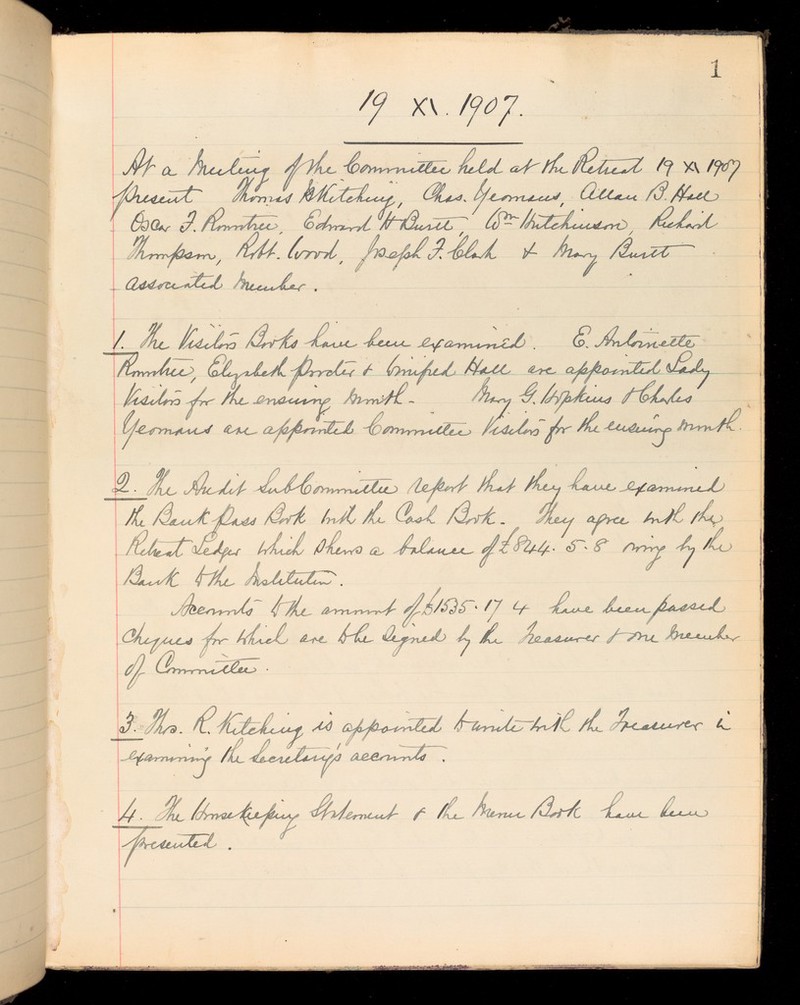 1
19 XI. 1907.
At a Meeting of the Committee held at the Retreat 19 XI 1907
present Thomas R Kitching, Chas. Yeomans, Allan B. Hall
Oscar F. Rowntree, Edward H Burtt, Wm Hutchinson, Richard
Thompson, Robt. Wood, Joseph F. Clark & Mary Burtt
associated member.
1. The Visitors Books have been examined. E. Antoinette
Rowntree, Elizabeth Procter & Winifred Hall are appointed Lady
Visitors for the ensuing month - Mary G. Hopkins & Charles
Yeomans are appointed Committee Visitors for the ensuing month.
2. The Audit SubCommittee report that they have examined
the Bank pass Book with the Cash Book. They agree with the
Retreat Ledger which shews a balance of £844. 5. 8 owing by the
Bank to the Institution.
Accounts to the amount of £1535. 17 4 have been passed
cheques for which are to be signed by the Treasurer & one Member
of Committee.
3. Thos. R. Kitching is appointed to unite with the Treasurer in
examining the Secretary's accounts.
4. The Housekeeping Statement & the Menu Book have been
presented.